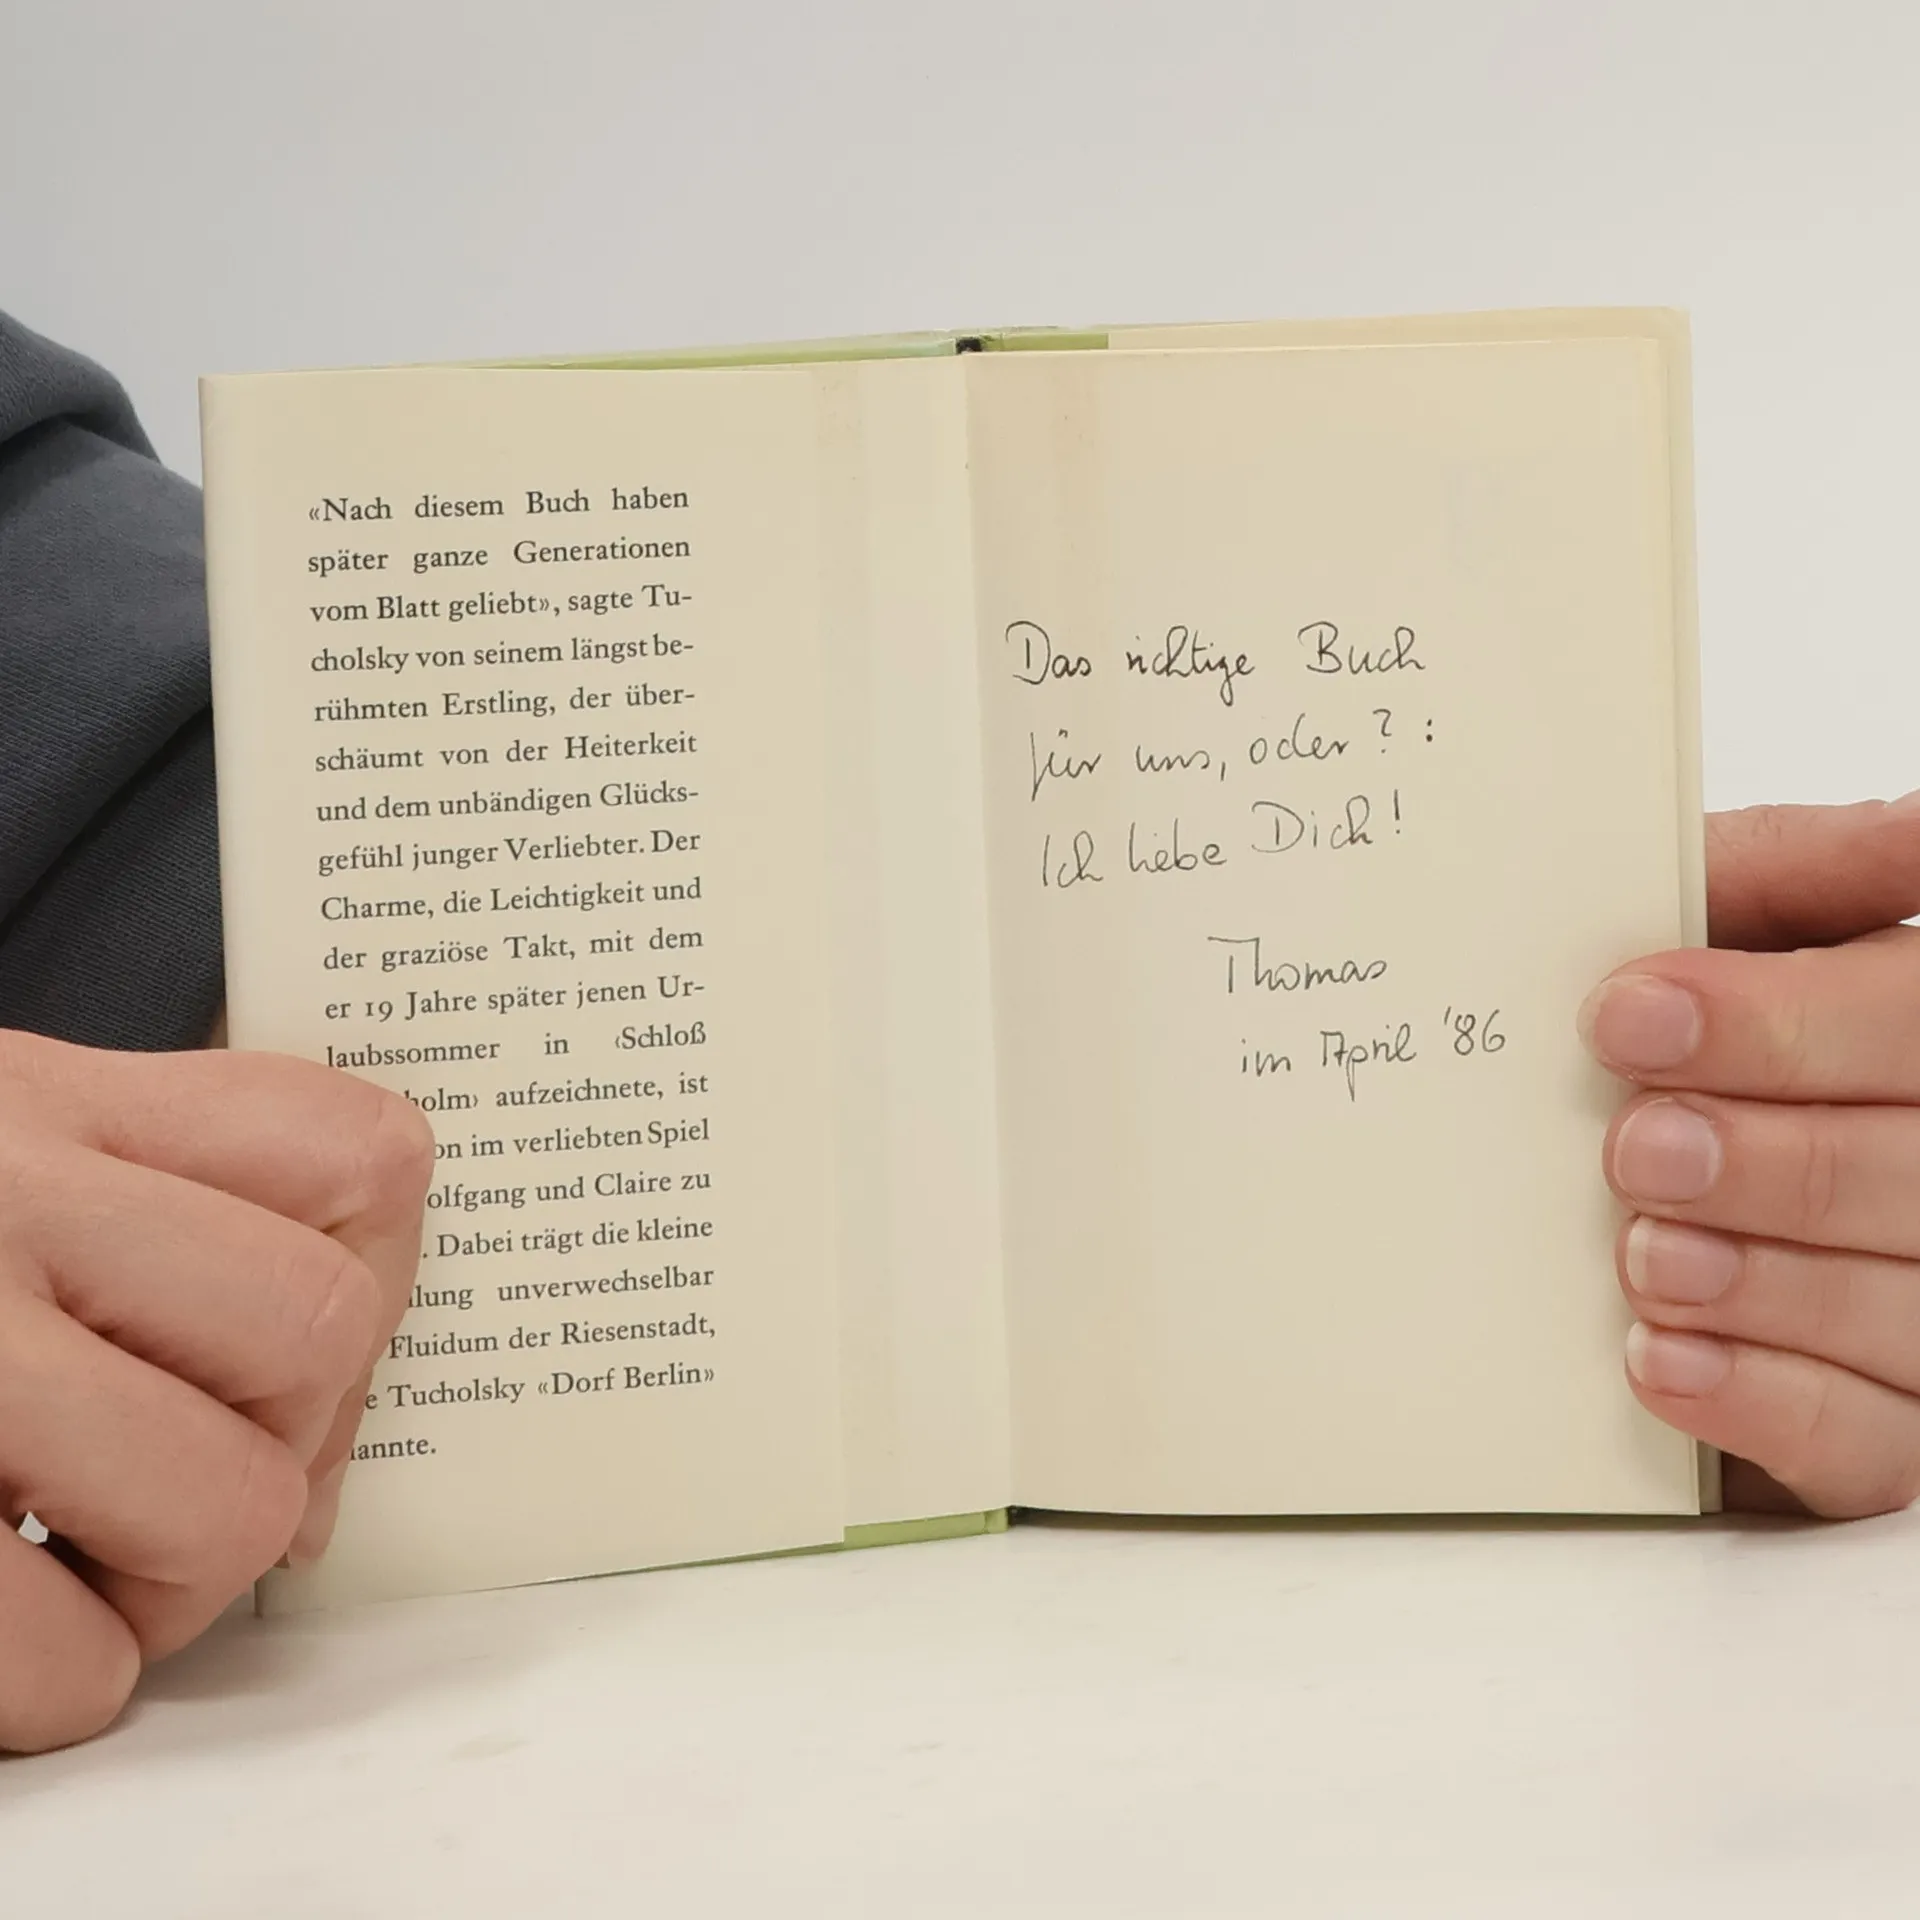 «Nach diesem Buch haben
später ganze Generationen
vom Blatt geliebt», sagte Tu-
cholsky von seinem längst be-
rühmten Erstling, der über-
schäumt von der Heiterkeit
und dem unbändigen Glücks-
gefühl junger Verliebter. Der
Charme, die Leichtigkeit und
der graziöse Takt, mit dem
er 19 Jahre später jenen Ur-
laubssommer in ‹Schloß
holm› aufzeichnete, ist
on im verliebten Spiel
olfgang und Claire zu
. Dabei trägt die kleine
lung unverwechselbar
Fluidum der Riesenstadt,
e Tucholsky «Dorf Berlin»
annte.
Das richtige Buch
für uns, oder? :
Ich liebe Dich!
Thomas
im April '86